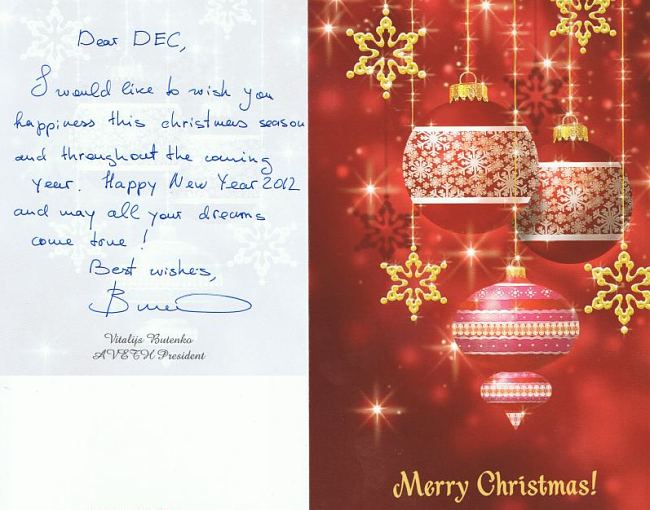 Dear DEC,
I would like to wish you
happiness this christmas season
and throughout the coming
year. Happy New Year 2012
and may all your dreams
come true!
Best wishes,
Vitalijs Butenko
AVETH President
Merry Christmas!